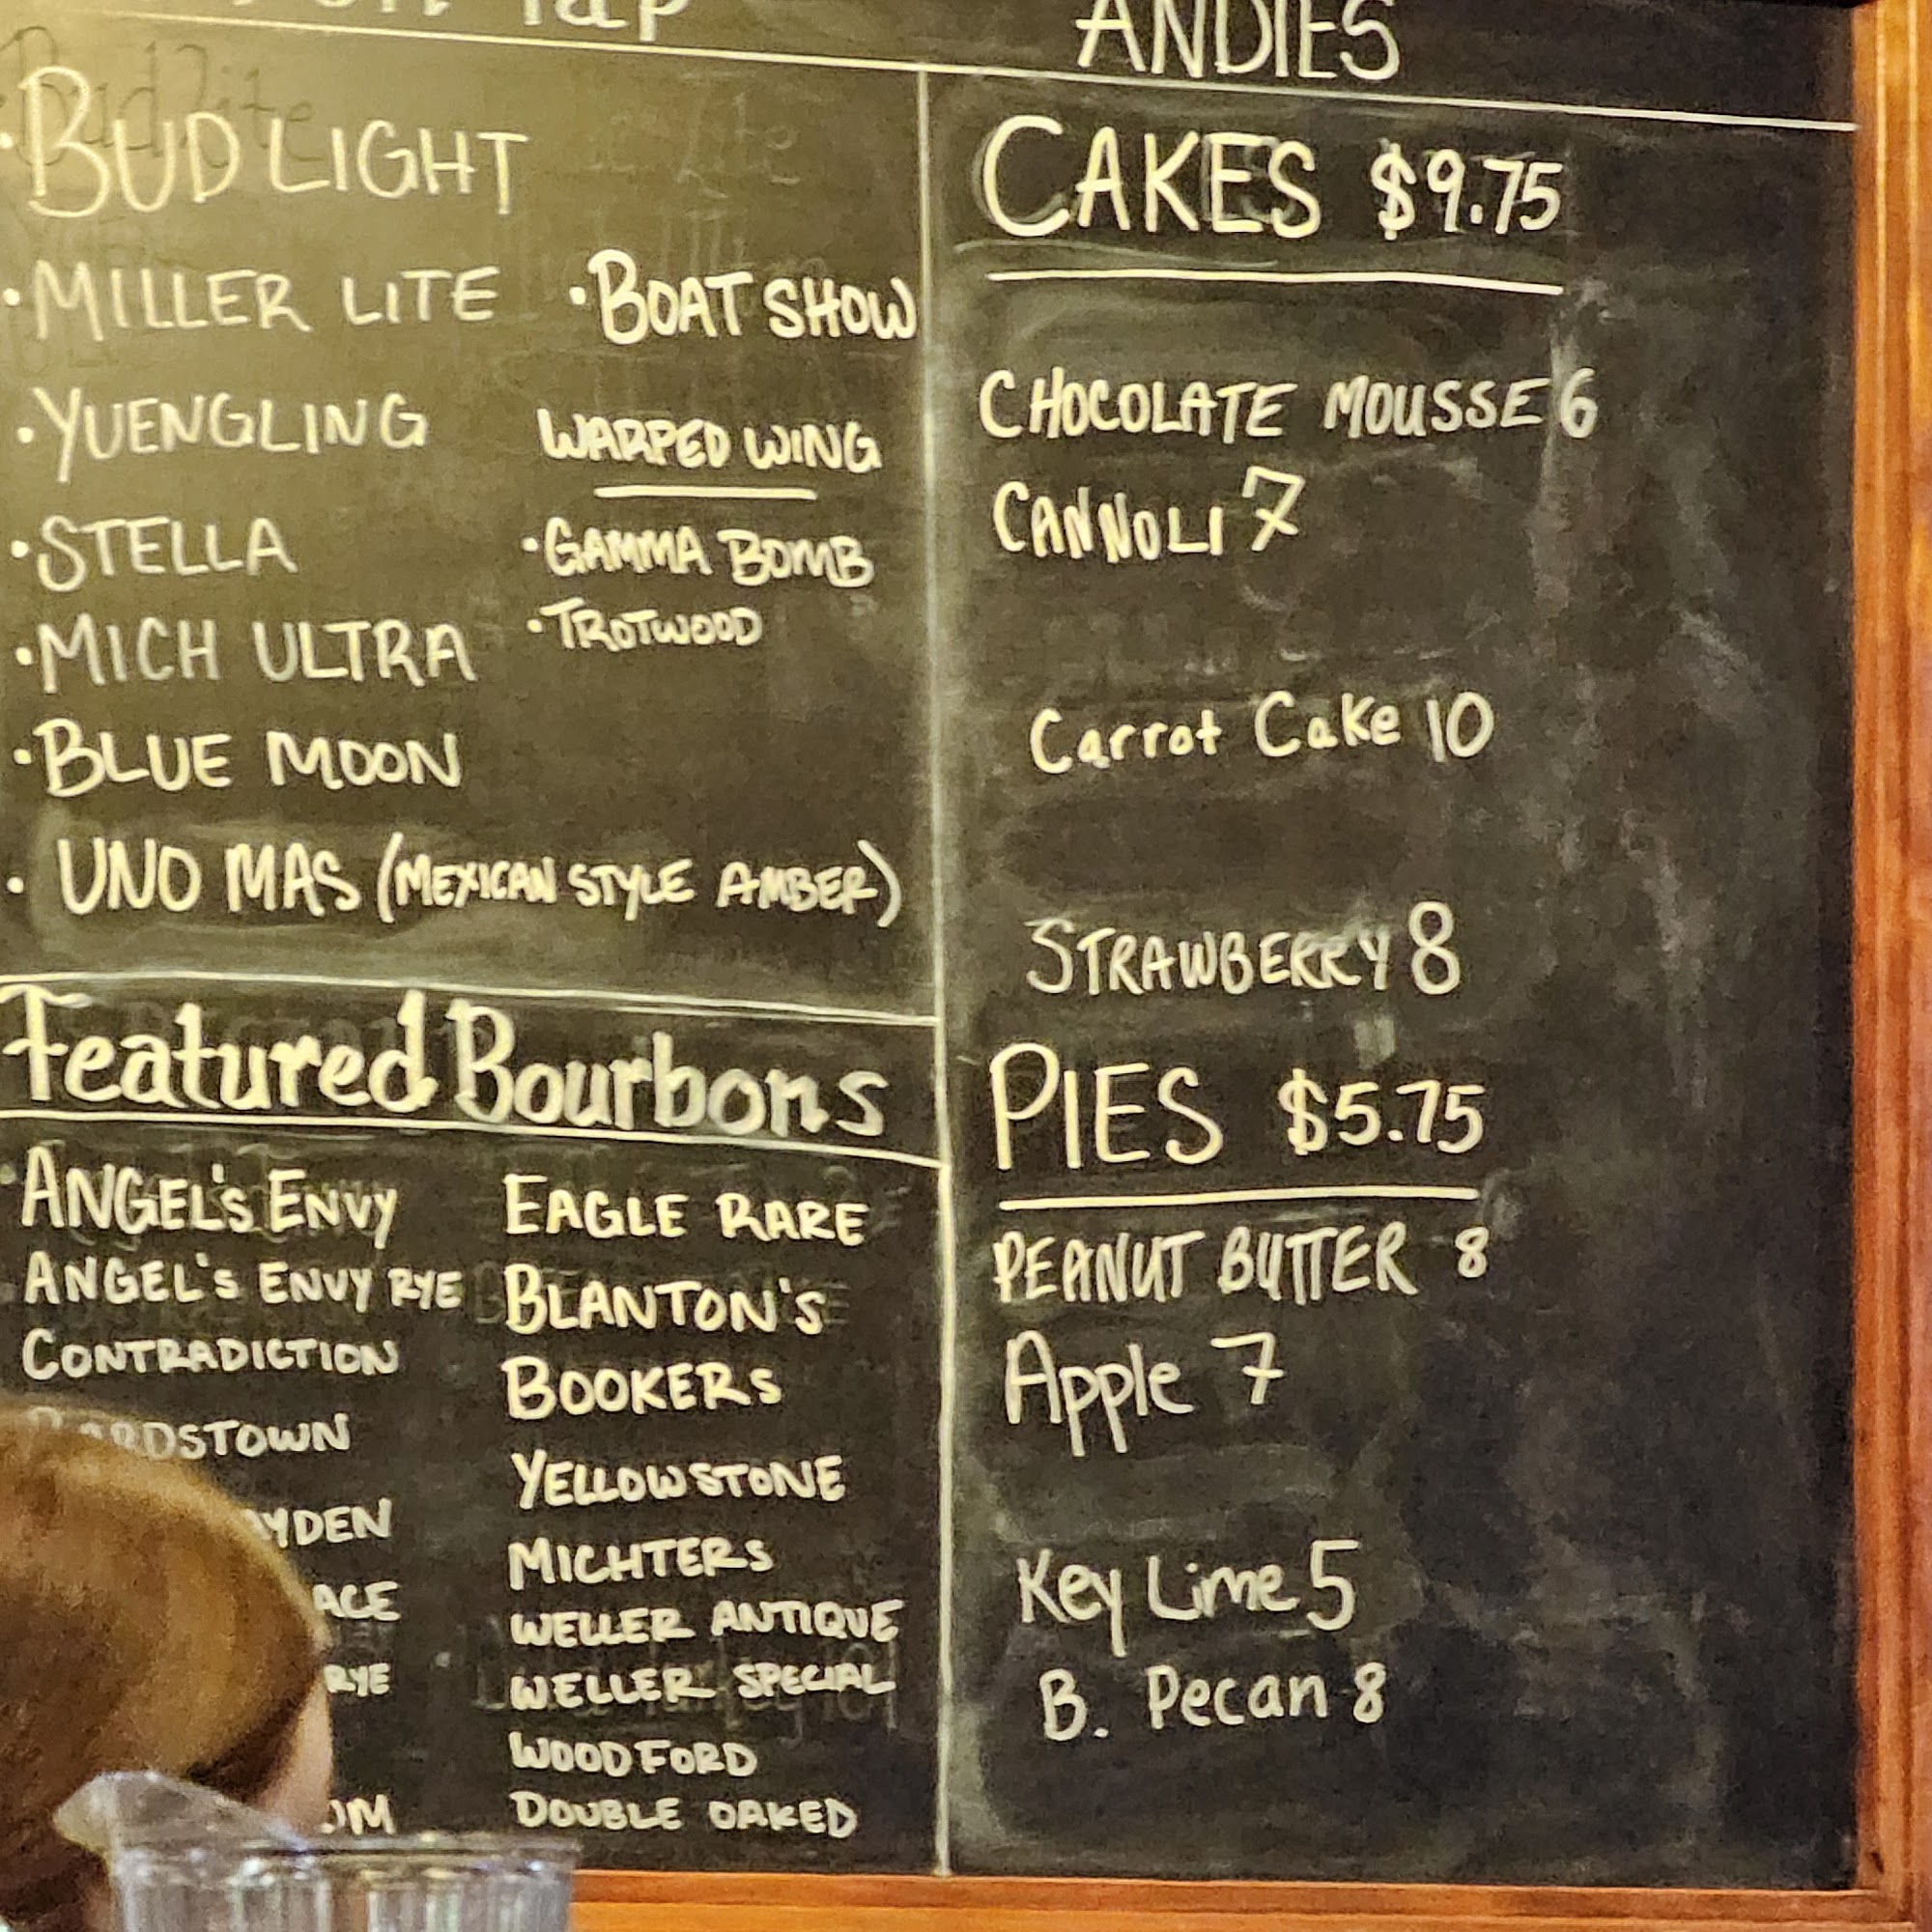 Tap
ANDIES
• BUD LIGHT
• MILLER LITE
• YUENGLING
• STELLA
• MICH ULTRA
• BLUE MOON
• BOAT SHOW
WARPED WING
• GAMMA BOMB
• TROTWOOD
• UNO MAS (MEXICAN STYLE AMBER)
Featured Bourbons
ANGEL'S ENVY
ANGEL'S ENVY RYE
CONTRADICTION
RYE
EAGLE RARE
BLANTON'S
BOOKERS
YELLOWSTONE
MICHTERS
WELLER ANTIQUE
WELLER SPECIAL
WOODFORD
DOUBLE OAKED
CAKES $9.75
CHOCOLATE MOUSSE 6
CANNOLI 7
Carrot Cake 10
STRAWBERRY 8
PIES $5.75
PEANUT BUTTER 8
Apple 7
Key Lime 5
B. Pecan 8